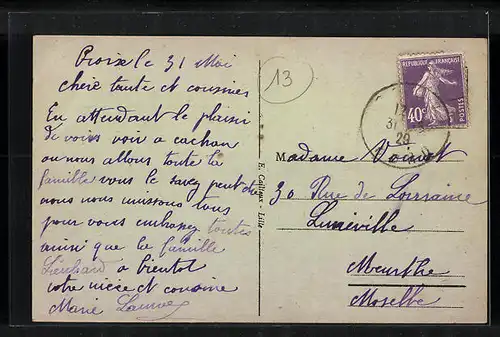 Croix le 31 Mai
chère tante et cousines
En attendant le plaisir
de vous voir a cachan
ou nous allons toute la
famille vous le savez peut etre
nous nous unissons tous
pour vous embrasser toutes
ainsi que la famille
Lienhard a bientot
votre nièce et cousine
Marie
13
REPUBLIQUE FRANÇAISE
POSTES
40c
E. Cailteux - Lille
Madame Voinot
30 Rue de Lorraine
Lunéville
Meurthe
Moselle